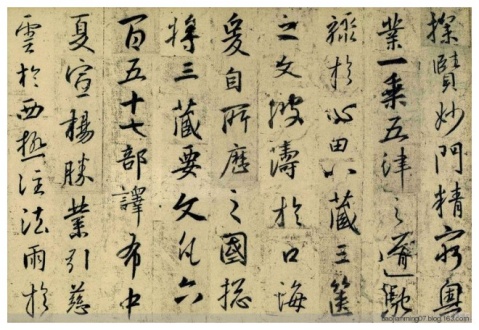 探賾妙門精窮奧
業一乘五律之道馳
驟於心田八藏三篋
之文波濤於口海
爰自所歷之國總
將三藏要文凡六
百五十七部譯布中
夏宣揚勝業引慈
雲於西極注法雨於
baojianming07.blog.163.com